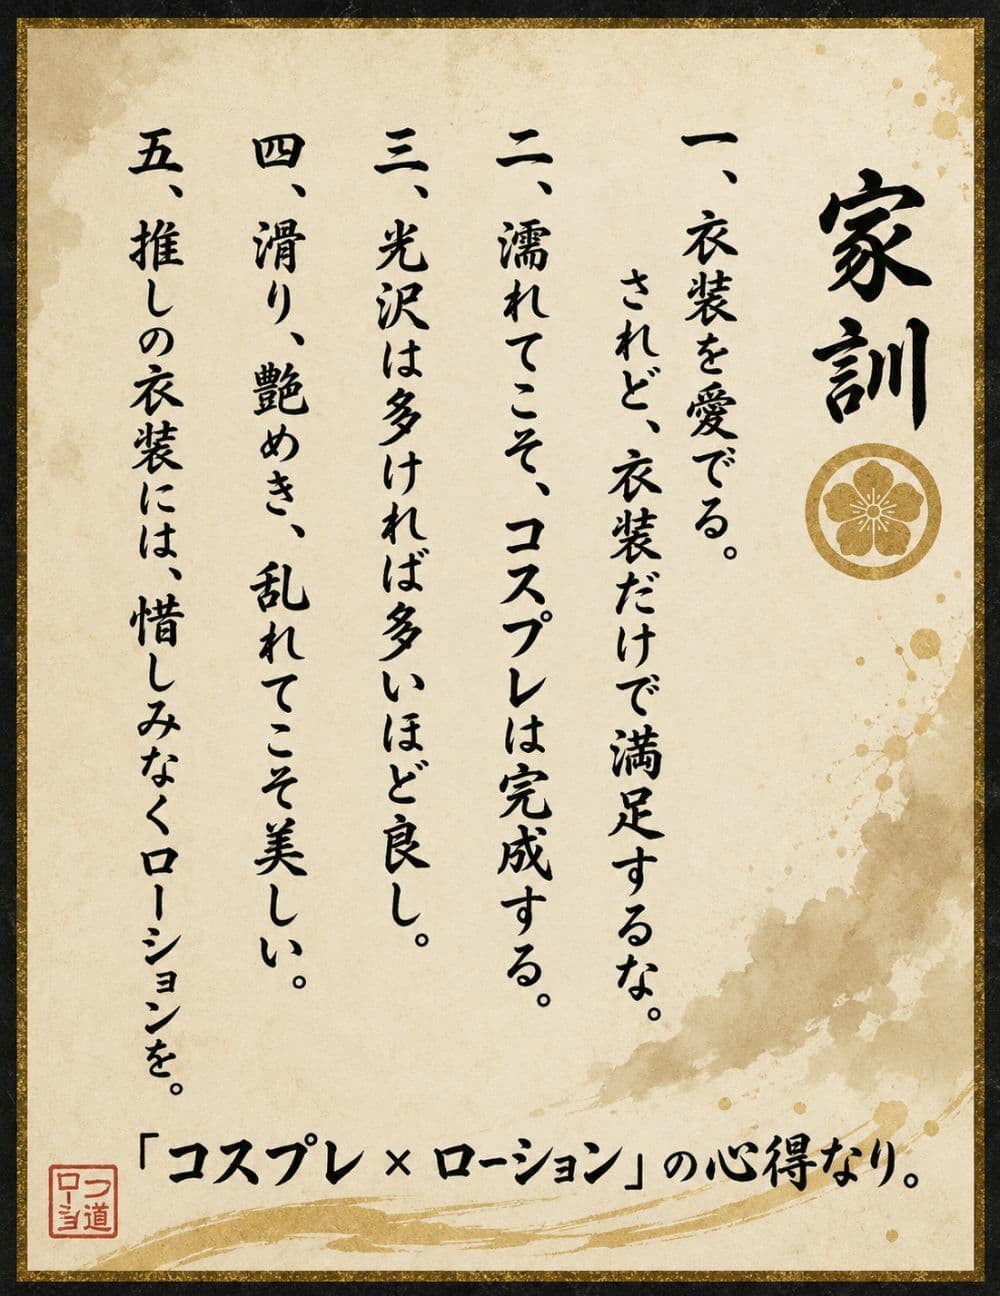 家訓
一、衣装を愛でる。
されど、衣装だけで満足するな。
二、濡れてこそ、コスプレは完成する。
三、光沢は多ければ多いほど良し。
四、滑り、艶めき、乱れてこそ美しい。
五、推しの衣装には、惜しみなくローションを。
「コスプレ×ローション」の心得なり。